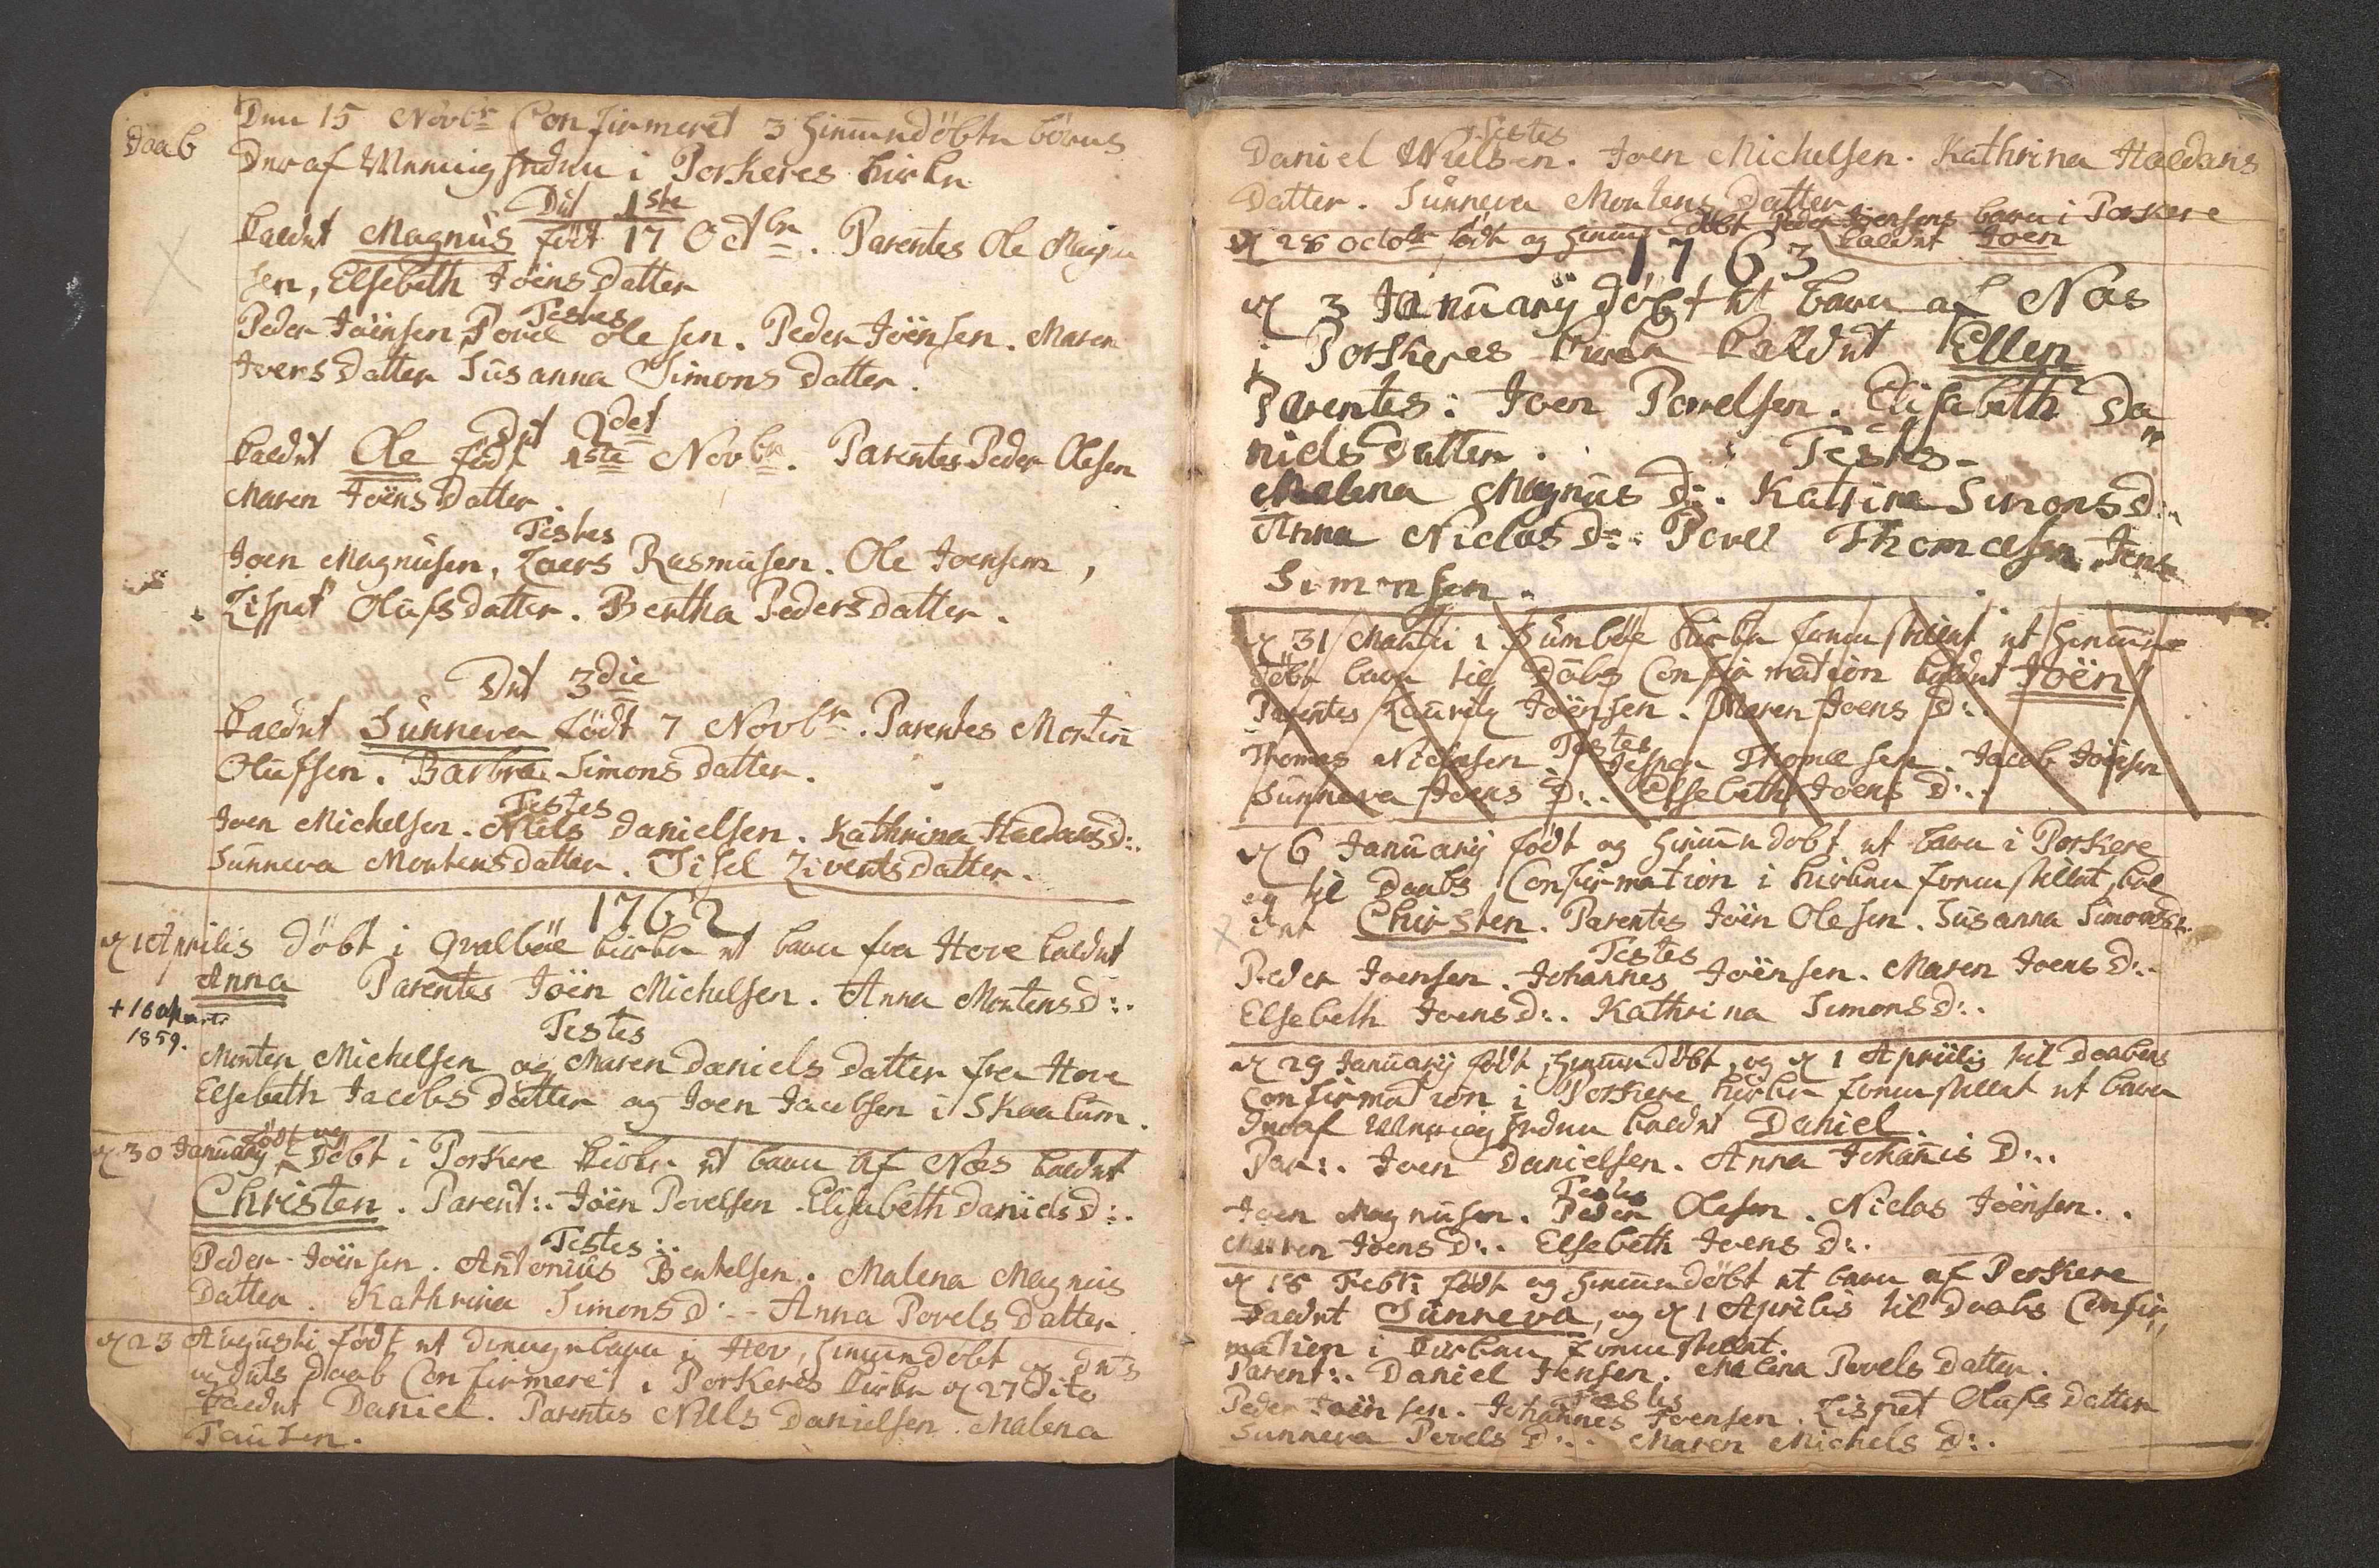 Daab
Den 15 Novbr Confirmeret 3 hiemmedöbte börns
Daab i Porkeres kirke
Det 1ste
kaldet Magnus födt 17 Octbr. Parentes Ole Magnu
sen, Elsebeth Joensdatter
Testes
Peder Joensen Povel Olesen. Peder Joensen. Maren
Joensdatter Susanna Simonsdatter.
Det 2det
kaldet Ole födt 1ste Novbr. Parentes Peder Olesen
Maren Joensdatter.
Testes
Joen Magnusen, Laers Rasmusen. Ole Joensen,
Lispet Olufsdatter. Bertha Pedersdatter.
Det 3die
kaldet Sunneva födt 7 Novbr. Parentes Morten
Olufsen. Barbra Simonsdatter.
Testes
Joen Michelsen. Niels Danielsen. Kathrina Haldansd:.
Sunneva Mortensdatter. Sisel Ziventsdatter.
1762
d 1 Aprilis döbt i Qvalböe kirke et barn fra Hove kaldet
Anna Parentes Joen Michelsen. Anna Mortensd:.
+ 16
1859.
Testes
Morten Michelsen og Maren Danielsdatter fra Hove
Elsebeth Jacobsdatter og Joen Jacobsen i Skaalum.
d 30 January födt og döbt i Porkere kirke et barn af Næs kaldet
Christen. Parent:. Joen Povelsen. Elisabeth Danielsd:.
Testes:.
Peder Joensen. Antonius Bentelsen. Malena Magnus
Datter. Kathrina Simonsd:. Anna Povels Datter
d 23 Augusti födt et drengebarn i Hov, hiemmedöbt og dets
Daab Confirmeret i Porkeres kirke d 27 dito
kaldet Daniel. Parentes Niels Danielsen. Malena
Pausen.
Testes
Daniel Nielsen. Joen Michelsen. Kathrina Haldans
Datter. Sunneva Mortens Datter
d 28 Octobr födt og hiemme döbt Peder Joensens barn i Porkere
kaldet Joen
1763
d 3 January döbt et barn af Næs
i Porkeres kirke kaldet Ellen
Parentes: Joen Povelsen. Elisabeth Da
nielsdatter. Testes
Malena Magnus D:. Katrine Simonsd:.
Anna Niclas D:. Povel Thomesen. Jens
Simonsen.
d 31 Martii i Sumböe kirke fremstillet et hiemme
döbt barn til Dåbs Confirmation kaldet Joen
Parentes Lauritz Joensen. Maren Joens D:.
Testes
Thomas Niclasen. Jesper Thomesen. Jacob Joensen
Sunneva Joens D:. Elsebeth Joens D:.
d 6 January födt og hiemmedöbt et barn i Porkere
og til Daabs Confirmation i kirken fremstillet, kal
det Chirsten. Parentes Joen Olesen. Susanna Simonsd:.
Testes
Peder Joensen. Johannes Joensen. Maren Joensd:.
Elsebeth Joensd:. Kathrina Simonsd:.
d 29 January födt, hiemmedöbt, og d 1 Aprilis til Daabens
Confirmation i Porkere kirke fremstillet et barn
kaldet Daniel.
Par:. Joen Danielsen. Anna Johannis D:.
Testes
Joen Magnusen. Peder Olesen. Niclas Joensen.
Maren Joens D:. Elsebeth Joens D:.
d 18 Febr: födt og hiemmedöbt et barn af Porkere
kaldet Sunneva, og d 1 Aprilis til Daabs Confir
mation i kirken fremstillet.
Parent:. Daniel Jensen. Malena Povels datter.
Testes
Peder Joensen. Johannes Joensen. Lispet Olufs Datter
Sunneva Povels D:. Maren Michels D:.